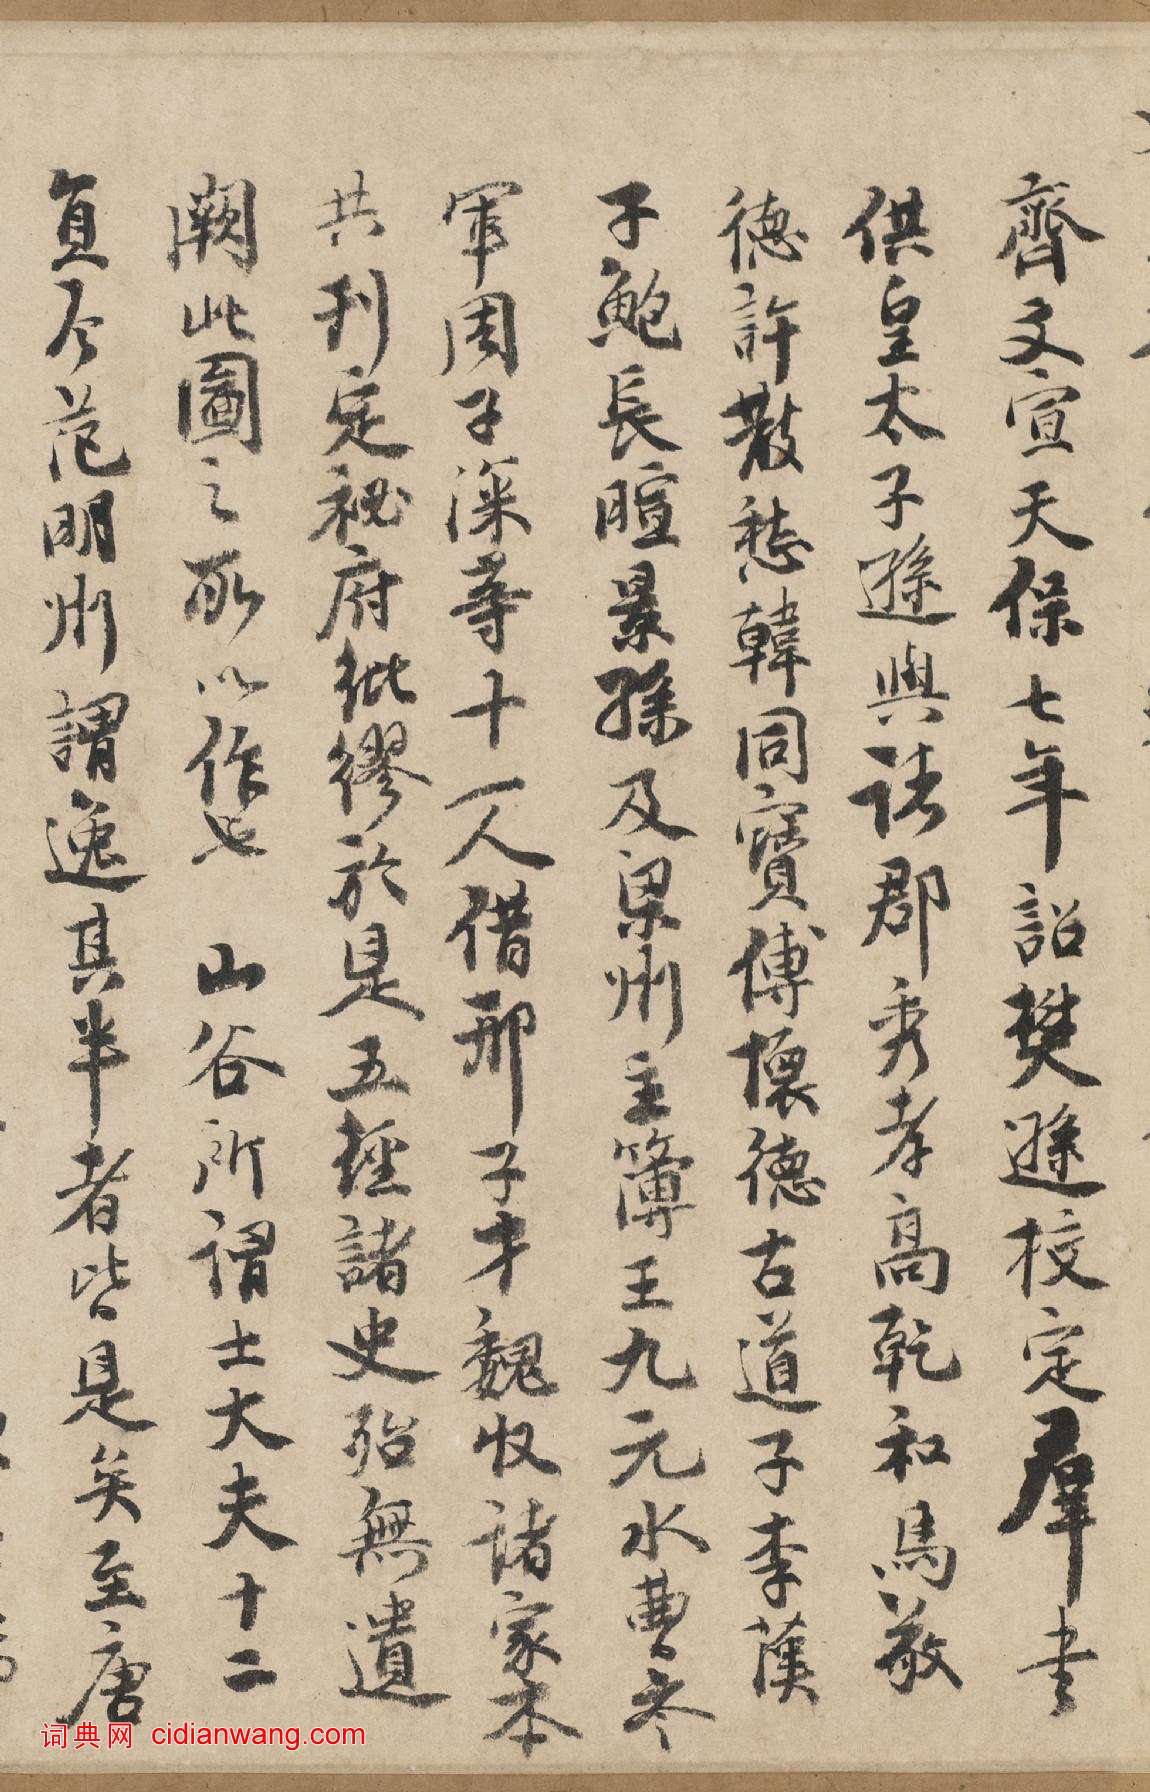 齊文宣天保七年詔樊遜校定羣書
供皇太子遜與諸郡秀孝高乾和馬敬
德許散愁韓同寶傅懷德古道子李漢
子鮑長暄景孫及梁州主簿王九元水曹參
軍周子深等十一人借邢子才魏收諸家本
共刊定秘府紕繆於是五經諸史殆無遺
闕此圖之所以作也 山谷所謂士大夫十二
員今范明州謂逸其半者皆是矣至唐
词典网 cidianwang.com